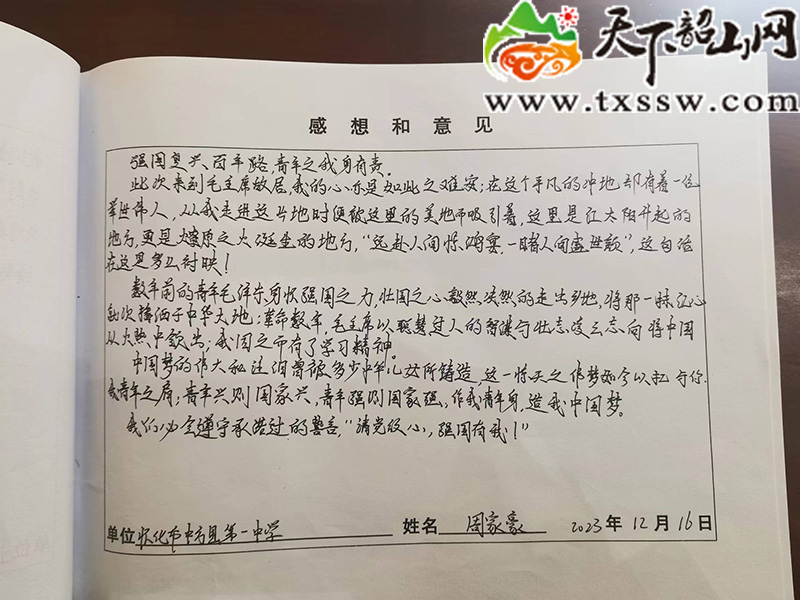 天下韶山网
www.txssw.com
感想和意见
强国复兴、百年路，青年之我身有责。
此次来到毛主席故居，我的心亦是如此之难安；在这个平凡的冲地却有着一位
举世伟人，从我走进这片地时便被这里的美地而吸引着，这里是红太阳升起的
地方，更是燎原之火诞生的地方，“远赴人间惊鸿宴，一睹人间盛世颜”，这句话
在这是多么衬映！
数年前的青年毛泽东身怀强国之力，壮国之心毅然决然的走出乡地，将那一抹红心
次播洒于中华大地；革命数年，毛主席以聪慧过人的智谋与壮志凌云志向将中国
从火热中救出；我国之而有了学习精神。
中国梦的伟大和过泪曾被多少中华儿女所铸造，这一惊天之伟梦如今以扛与你
我青年之肩；青年兴则国家兴，青年强则国家强，作我青年身，造我中国梦。
我们必定遵守承诺过的誓言，“请党放心，强国有我！”
单位 怀化市中方县第一中学 姓名 周家豪 2023年12月16日